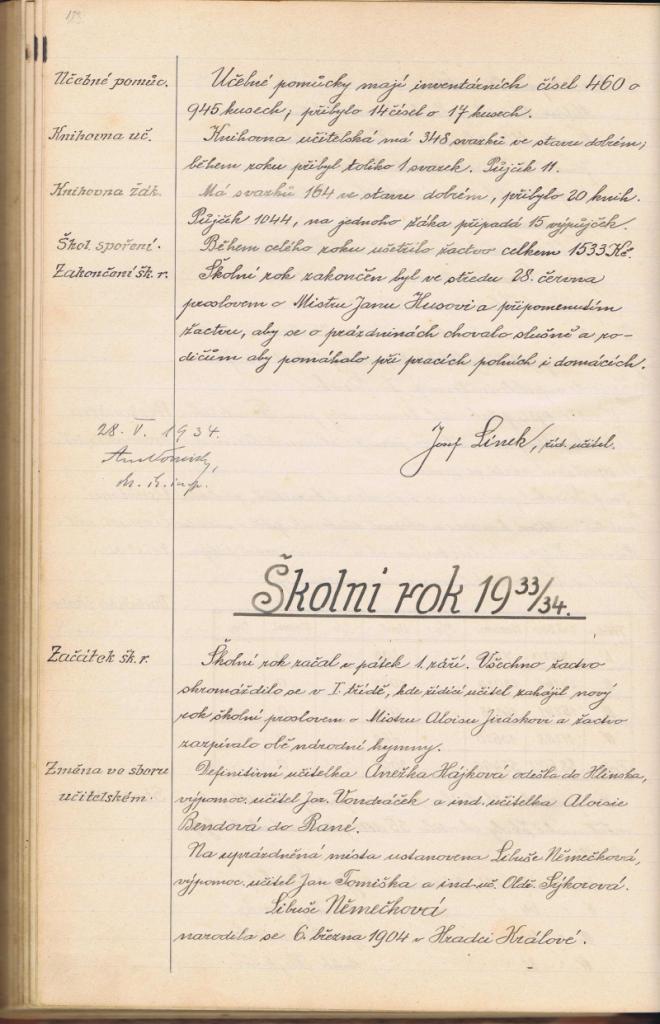 Učebné pomůc.
Učebné pomůcky mají inventárních čísel 460 o
945 kusech; přibylo 14 čísel o 17 kusech.
Knihovna uč.
Knihovna učitelská má 348 svazků ve stavu dobrém;
během roku přibyl toliko 1 svazek. Půjček 11.
Knihovna žák.
Má svazků 164 ve stavu dobrém, přibylo 20 knih.
Půjček 1044, na jednoho žáka připadá 15 výpůjček.
Škol. spoření.
Během celého roku ušetřilo žactvo celkem 1533 Kč.
Zakončení šk. r.
Školní rok zakončen byl ve středu 28. června
proslovem o Mistru Janu Husovi a připomenutím
žactvu, aby se o prázdninách chovalo slušně a ro-
dičům aby pomáhalo při pracích polních i domácích.
28. V. 1934.
Josef Línek, říd. učitel.
Školní rok 1933/34.
Začátek šk. r.
Školní rok začal v pátek 1. září. Všechno žactvo
shromáždilo se v I. třídě, kde řídící učitel zahájil nový
rok školní proslovem o Mistru Aloisu Jiráskovi a žactvo
zazpívalo obě národní hymny.
Změna ve sboru
učitelském.
Definitivní učitelka Anežka Hájková odešla do Hlinska,
výpomoc. učitel Jar. Vondráček a ind. učitelka Aloisie
Bendová do Rané.
Na uprázdněná místa ustanovena Libuše Němečková,
výpomoc. učitel Jan Tomiška a ind. uč. Oldř. Sýkorová.
Libuše Němečková
narodila se 6. března 1904 v Hradci Králové.